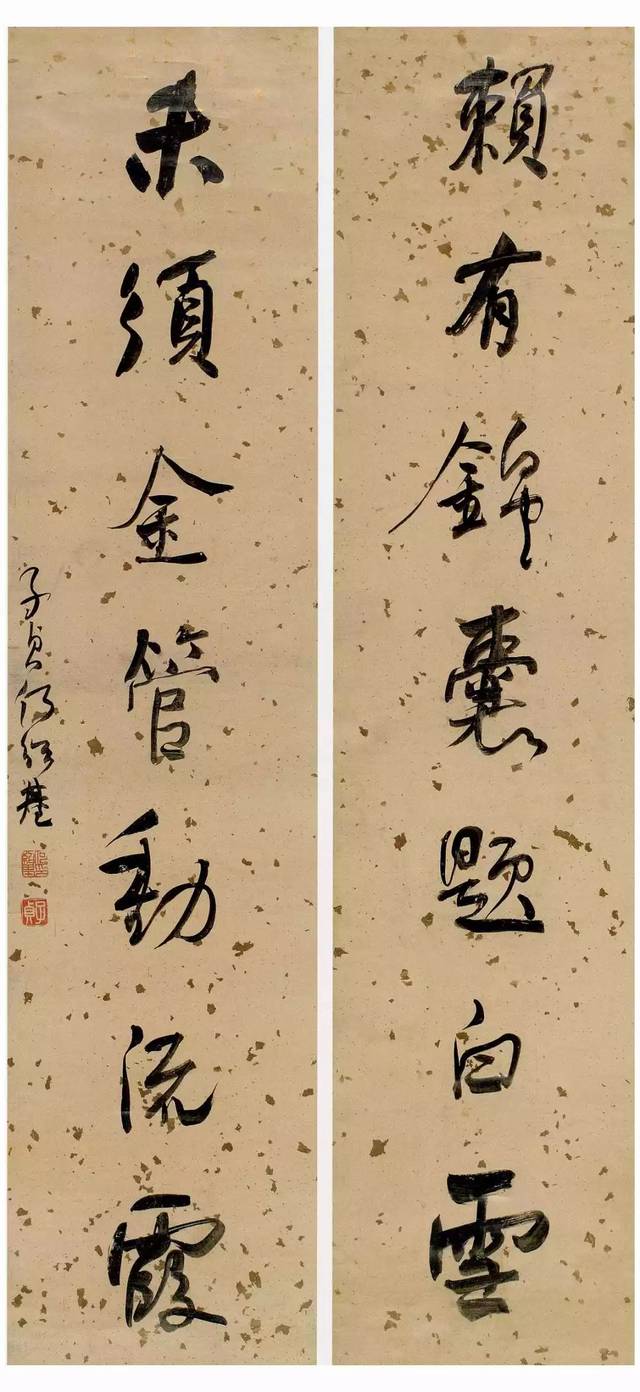 賴有錦囊題白雲
未須金管動流霞
子貞何紹基